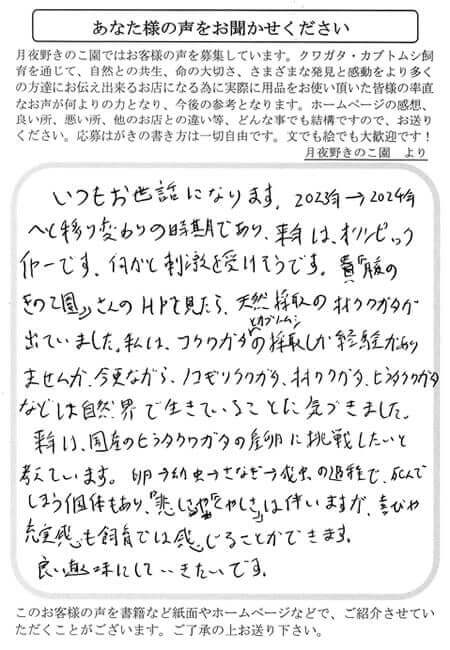 あなた様の声をお聞かせください
月夜野きのこ園ではお客様の声を募集しています。クワガタ・カブトムシ飼
育を通じて、自然との共生、命の大切さ、さまざまな発見と感動をより多く
の方達にお伝え出来るお店になる為に実際に用品をお使い頂いた皆様の率直
なお声が何よりの力となり、今後の参考となります。ホームページの感想、
良い所、悪い所、他のお店との違い等、どんな事でも結構ですので、お送り
ください。応募はがきの書き方は一切自由です。文でも絵でも大歓迎です！
月夜野きのこ園　より
いつもお世話になります。2023年→2024年
へと移り変わりの時期であり、来年は、オリンピック
イヤーです。何かと刺激を受けそうです。貴
きのこ園」さんのHPを見たら、天然採取のオオクワガタが
出ていました。私は、コクワガタとカブトムシの採取しか経験があり
ませんが、今更ながら、ノコギリクワガタ、オオクワガタ、ヒラタクワガタ
などは自然界で生きていることに気づきました。
来年は、国産のヒラタクワガタの産卵に挑戦したいと
考えています。卵→幼虫→さなぎ→成虫の過程で、死んで
しまう個体もあり、「悲しさやくやしさ」は伴いますが、喜びや
充実感も飼育では感じることができます。
良い趣味にしていきたいです。
このお客様の声を書籍など紙面やホームページなどで、ご紹介させてい
ただくことがございます。ご了承の上お送り下さい。